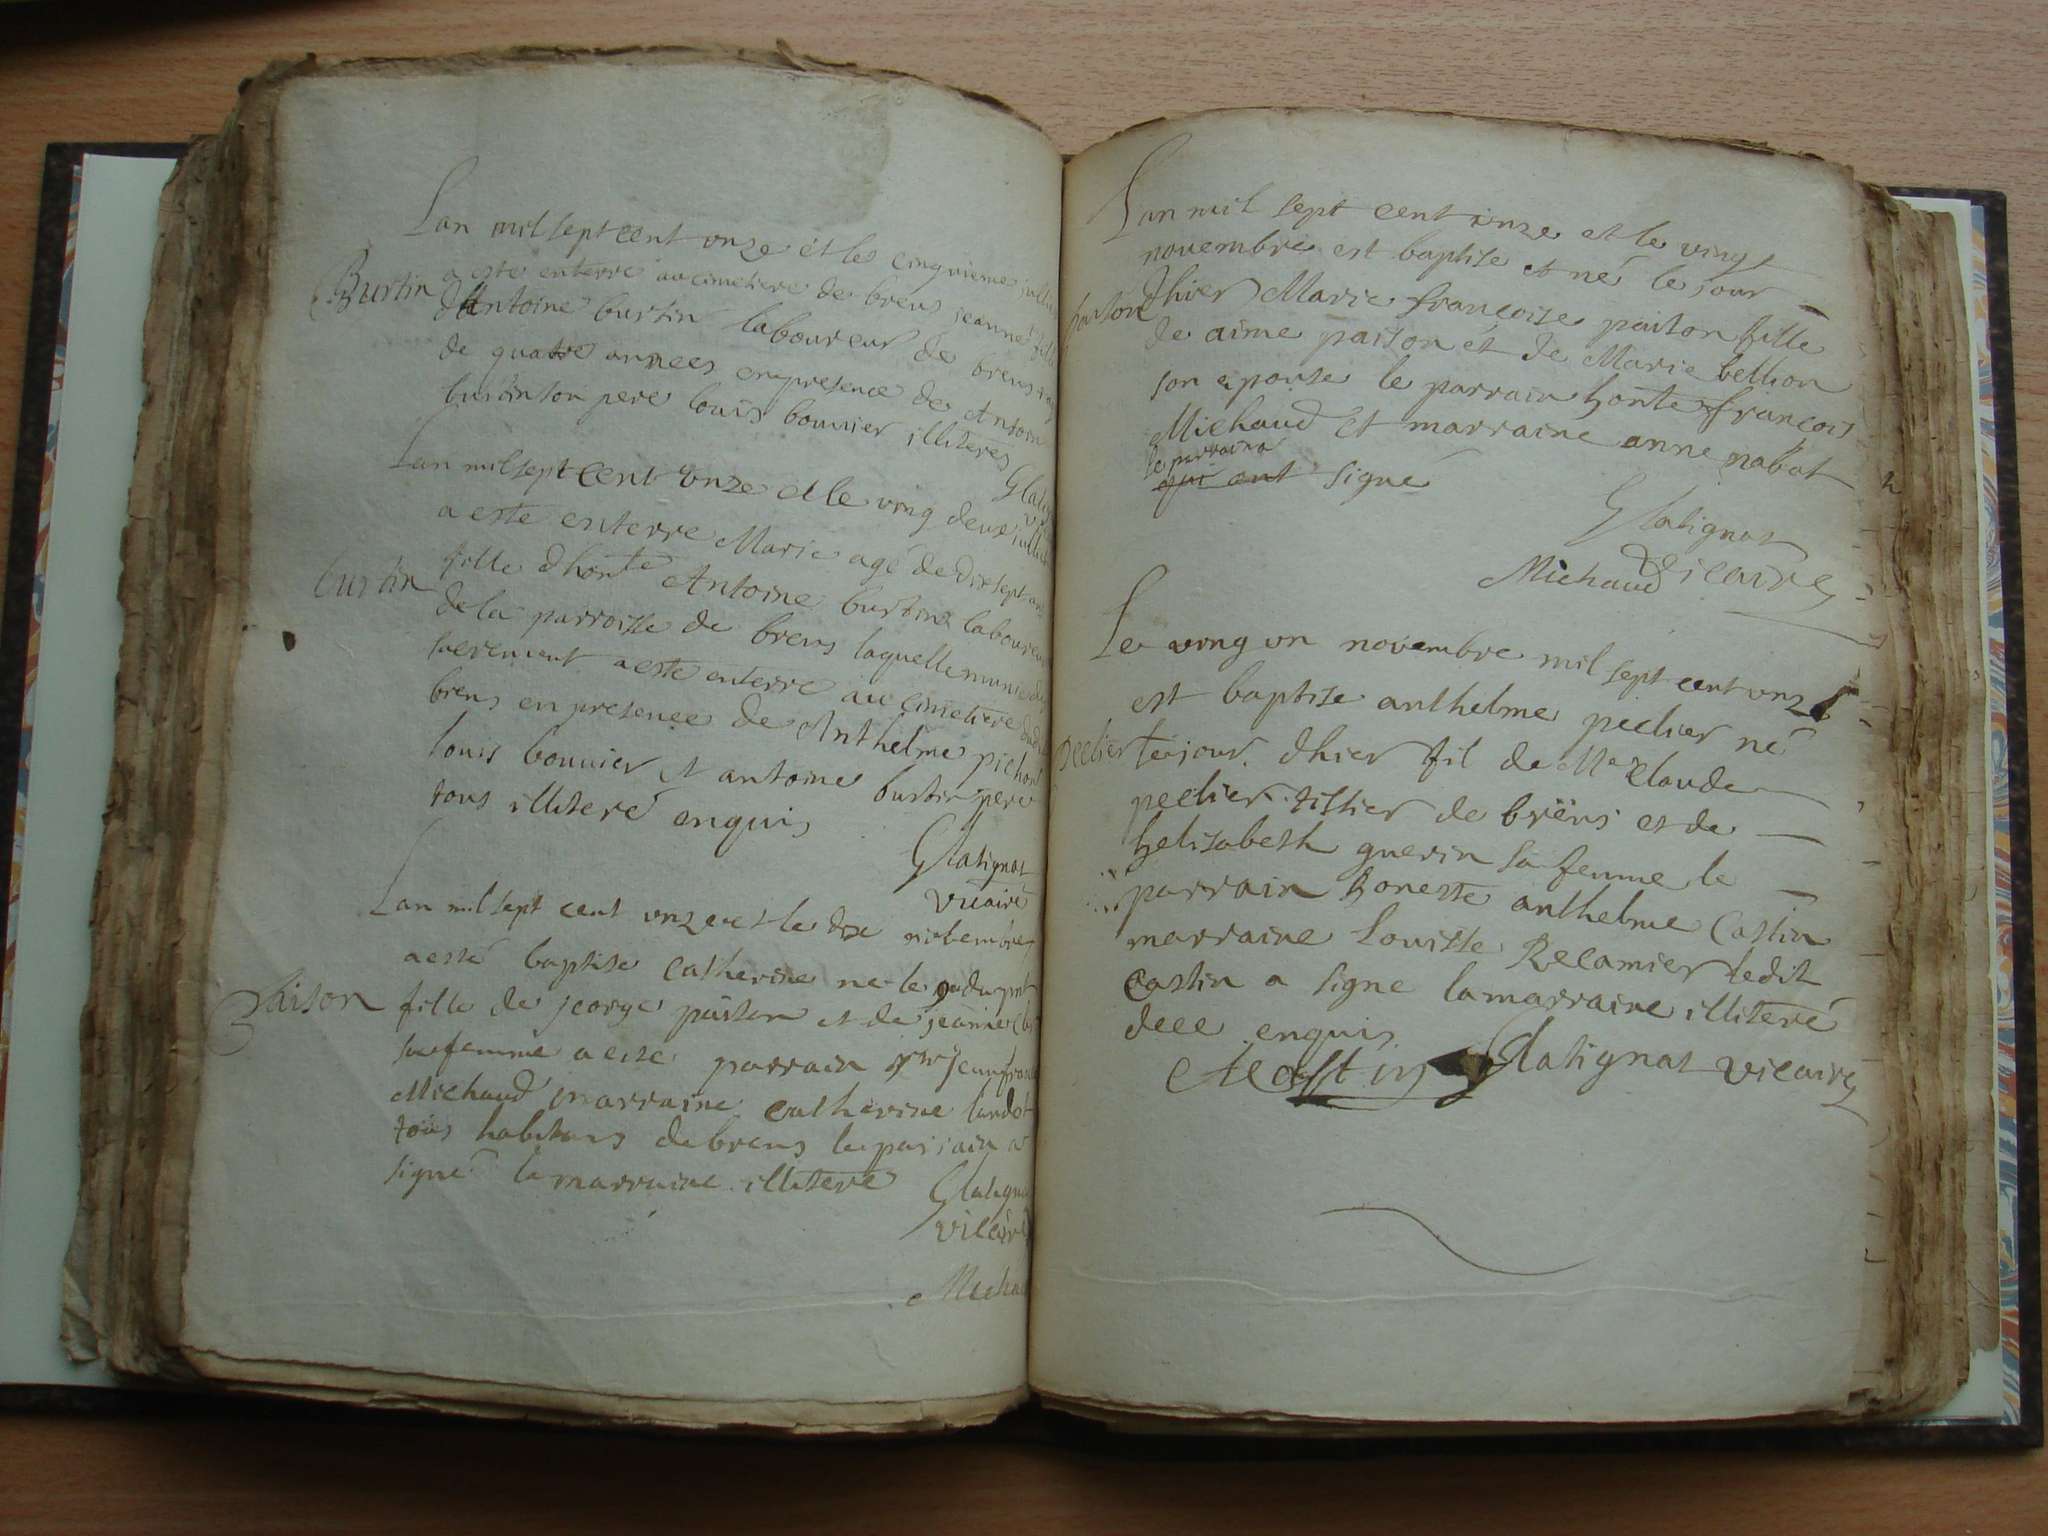 Lan mil sept cent onze et le cinquieme juillet
Burtin
a este enterre au cimetiere de brens jeanne fille
dAntoine burtin laboureur de brens
de quatre annees en presence de Antoin
burtin son pere louis bouvier illiteres
Glatig
Lan mil sept cent onze et le ving deux juillet
a este enterre Marie agé de dix sept an
burtin
fille dhonte Antoine burtin laboureur
de la parroisse de brens laquelle munie de
sacrement a este enterre au cimetiere dud
brens en presence de Anthelme pichon
louis bouvier et antoine burtin pere
tous illiteré enquis
Glatignat
vicaire
Lan mil sept cent onze et le dix novembre
a esté baptise catherine ne le 9 du pnt
paison
fille de jeorge paison et de jeanne
sa femme a este parrain jean fran
Michaud marraine catherine
tous habitans de brens le parrain a
signé la marraine illiteré
Glatigna
vicaire
Michau
Lan mil sept cent onze et le vingt
novembre est baptise et né le jour
paison
dhier Marie françoise paison fille
de aime paison et de Marie bellion
son epouse le parrain honte françois
Michaud et marraine anne nabot
le parraina
qui ont signé
Glatignat
vicaire
Michaud
Le ving un novembre mil sept cent onze
est baptise anthelme peclier né
peclier
le jour dhier fil de Me Claude
peclier tissier de brëns et de
helisabeth guerin sa femme le
parrain honeste anthelme Castin
marraine Louisse Recamier ledit
Castin a signe la marraine illiteré
dece enquis
ACastin Glatignat vicaire